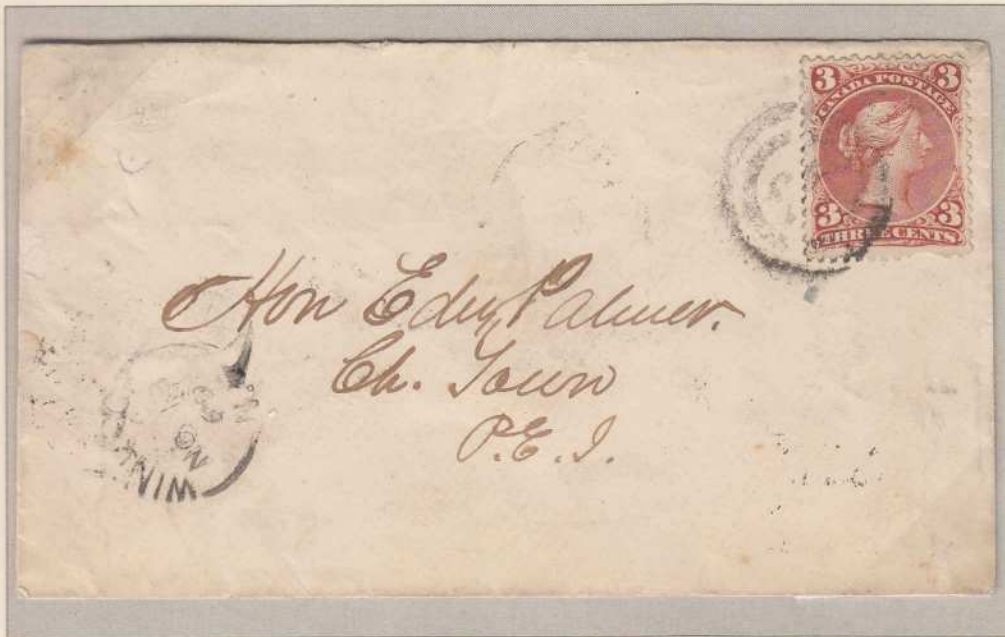 3 3
CANADA POSTAGE
3 3
THREE CENTS
Hon Edwd Palmer.
Ch. Town
P.E.I.